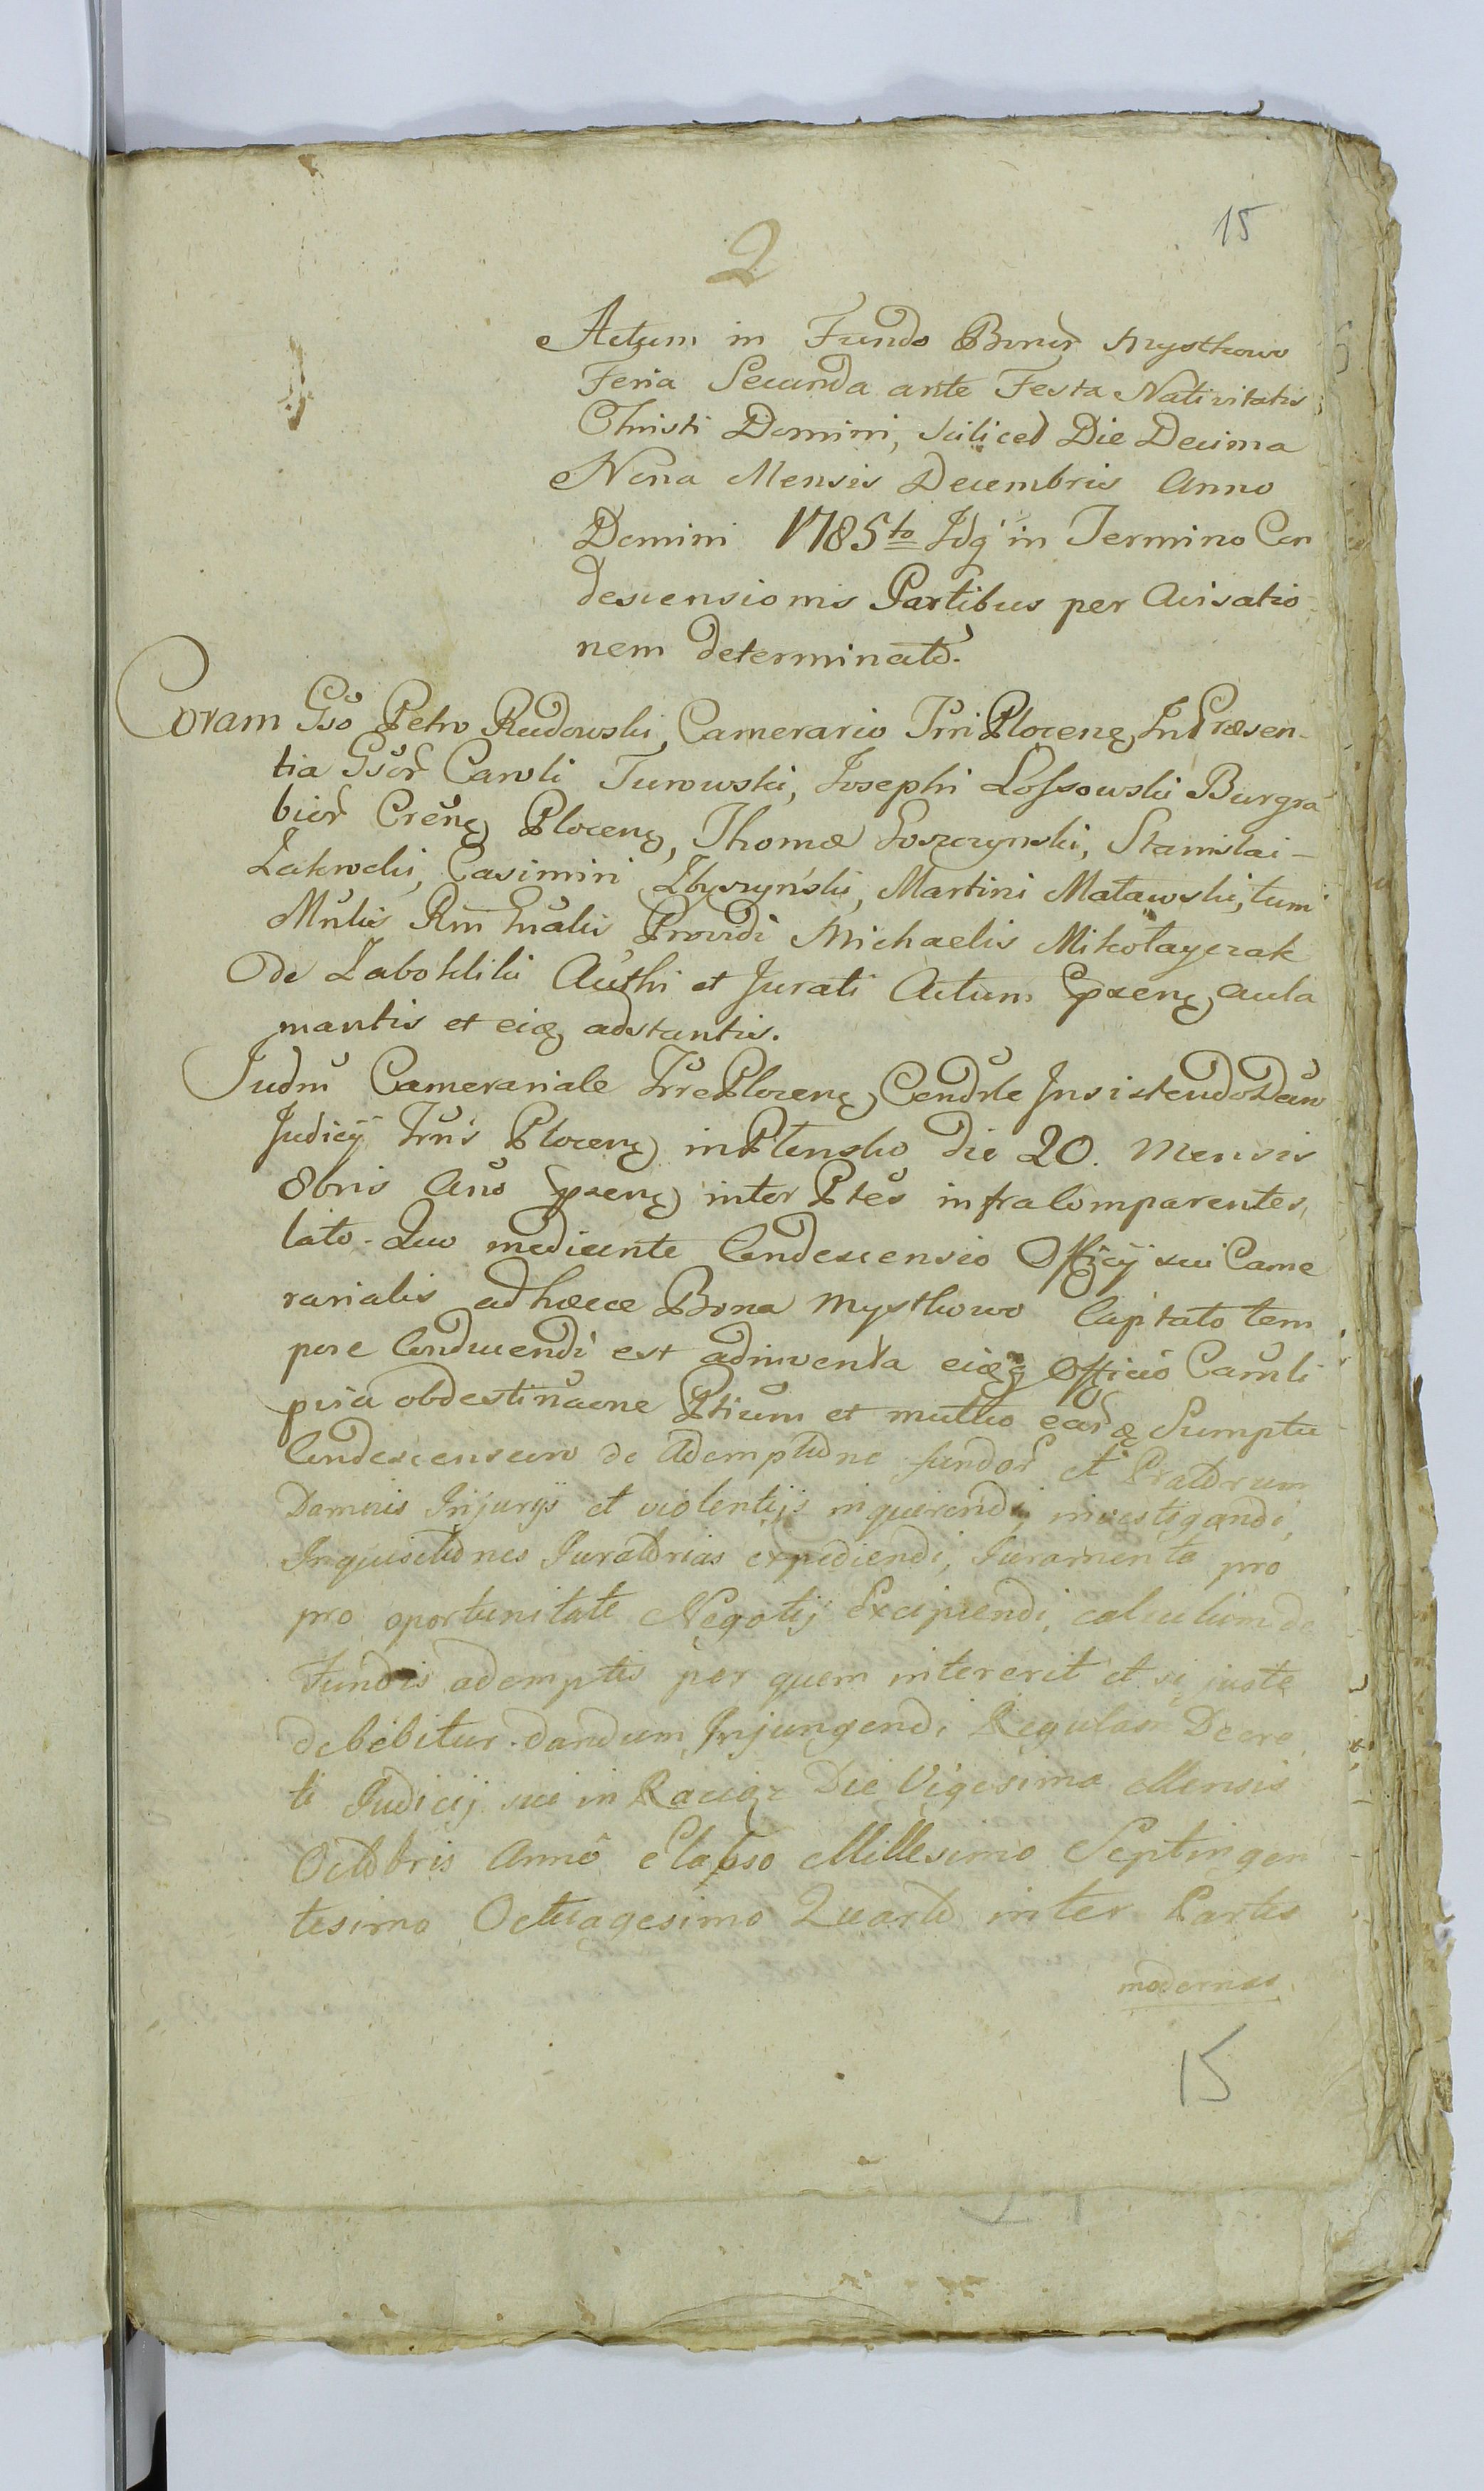 15
2
Actum in Fundo Bonor Mystkowo
Feria Secunda ante Festa Nativitatis
Christi Domini, scilicet Die Decima
Nona Mensis Decembris Anno
Domini 1785to Idq in Termino Con
descensionis Partibus per Avisatio
nem determinato.
Coram Gso Petro Rudowski, Camerario Trri Plocenς, In Præsen-
tia Gsor Caroli Turowski, Josephi Lossowski Burgra
bior Crenς Plocenς, Thomæ Soszczynski, Stanislai -
Zakrocki, Casimiri Zbyszyński, Martini Matawski, tum
Providi Michaelis Mikołayczak
De Zabokliki Authi et Jurati Actum Pxenς acla
mantis et eiq adstantis.
Judm Camerariale Trre Plocenς, Condrle Insistendo Decro
Judicij Trris Plocenς in Plonsko die 20. Mensis
8bris Ano Pxenς inter Ptes infra Comparentes,
lato. Quo mediante Condescensio Officij sui Came
rarialis ad hæcce Bona Mystkowo Capitato tem
pore Conducendi est adinventa eiæq Officio Camrli
pvia obdestinaone Ptium et mutuo earq Sumptu
Condescensuro de Ademptione fundor et Pratorum
Damnis Injurijs et violentijs inquirendi, investigandi,
Inquisitiones Juratorias expediendi, Juramenta pro
pro oportunitate Negotij Excipiendi, calculum de
Fundis ademptis per quem intererit et si juste
debebitur dandum Injungendi Regulam Decre
ti Judicij sui in Raciąż Die Vigesima Mensis
Octobris Annô Elapso Millesimo Septingen
tesimo Octuagesimo Quarto inter Partes
modernas
15